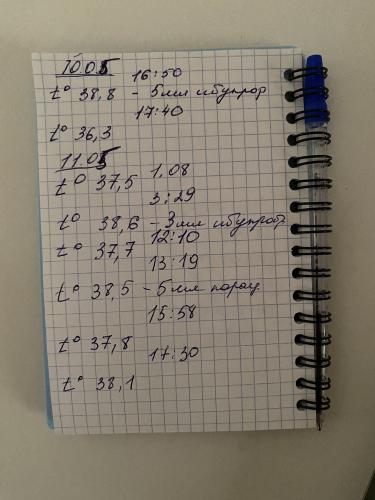 10.05
16:50
t° 38,8 - 5мл ибупроф
17:40
t° 36,3
11.05
1,08
t° 37,5
3:29
t° 38,6 - 3мл ибупроф
12:10
t° 37,7
13:19
t° 38,5 - 5мл парац
15:58
t° 37,8
17:30
t° 38,1